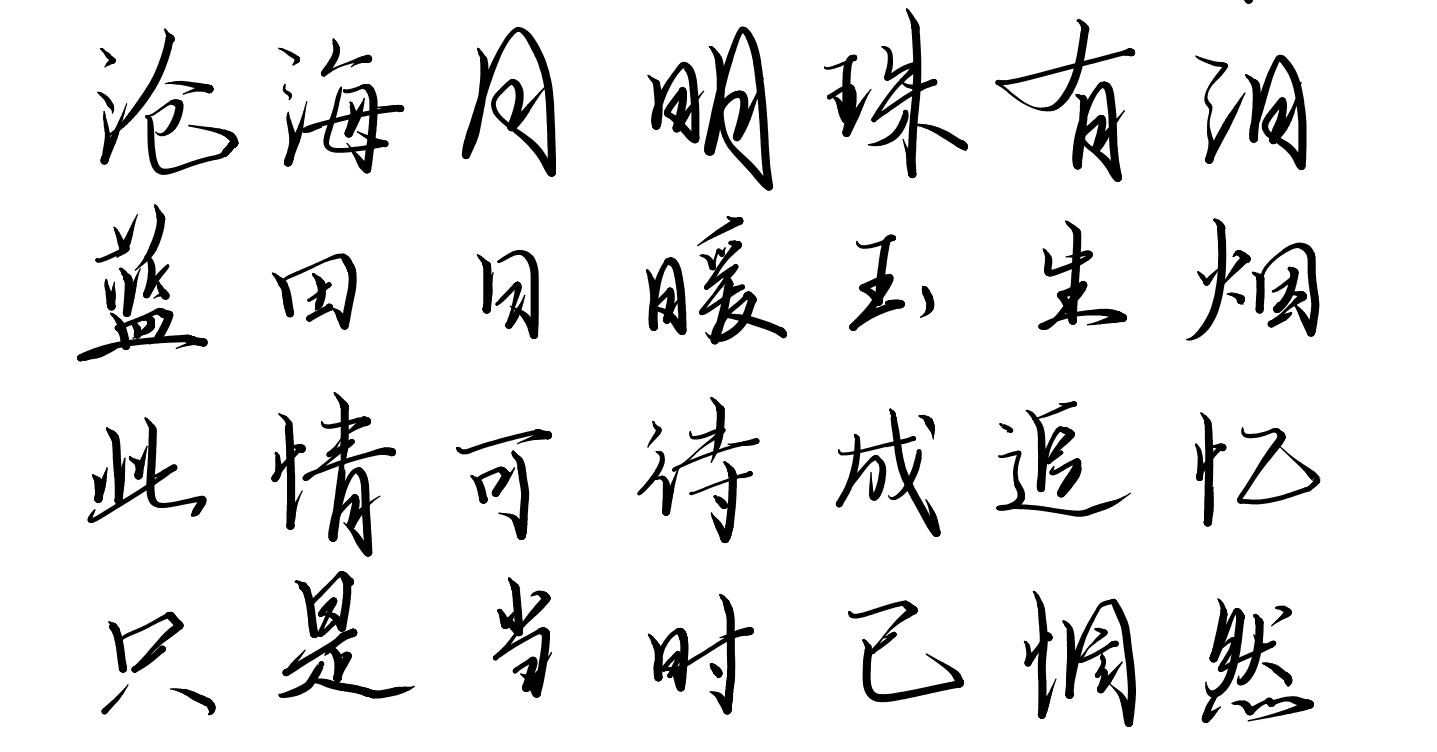 沧海月明珠有泪
蓝田日暖玉生烟
此情可待成追忆
只是当时已惘然